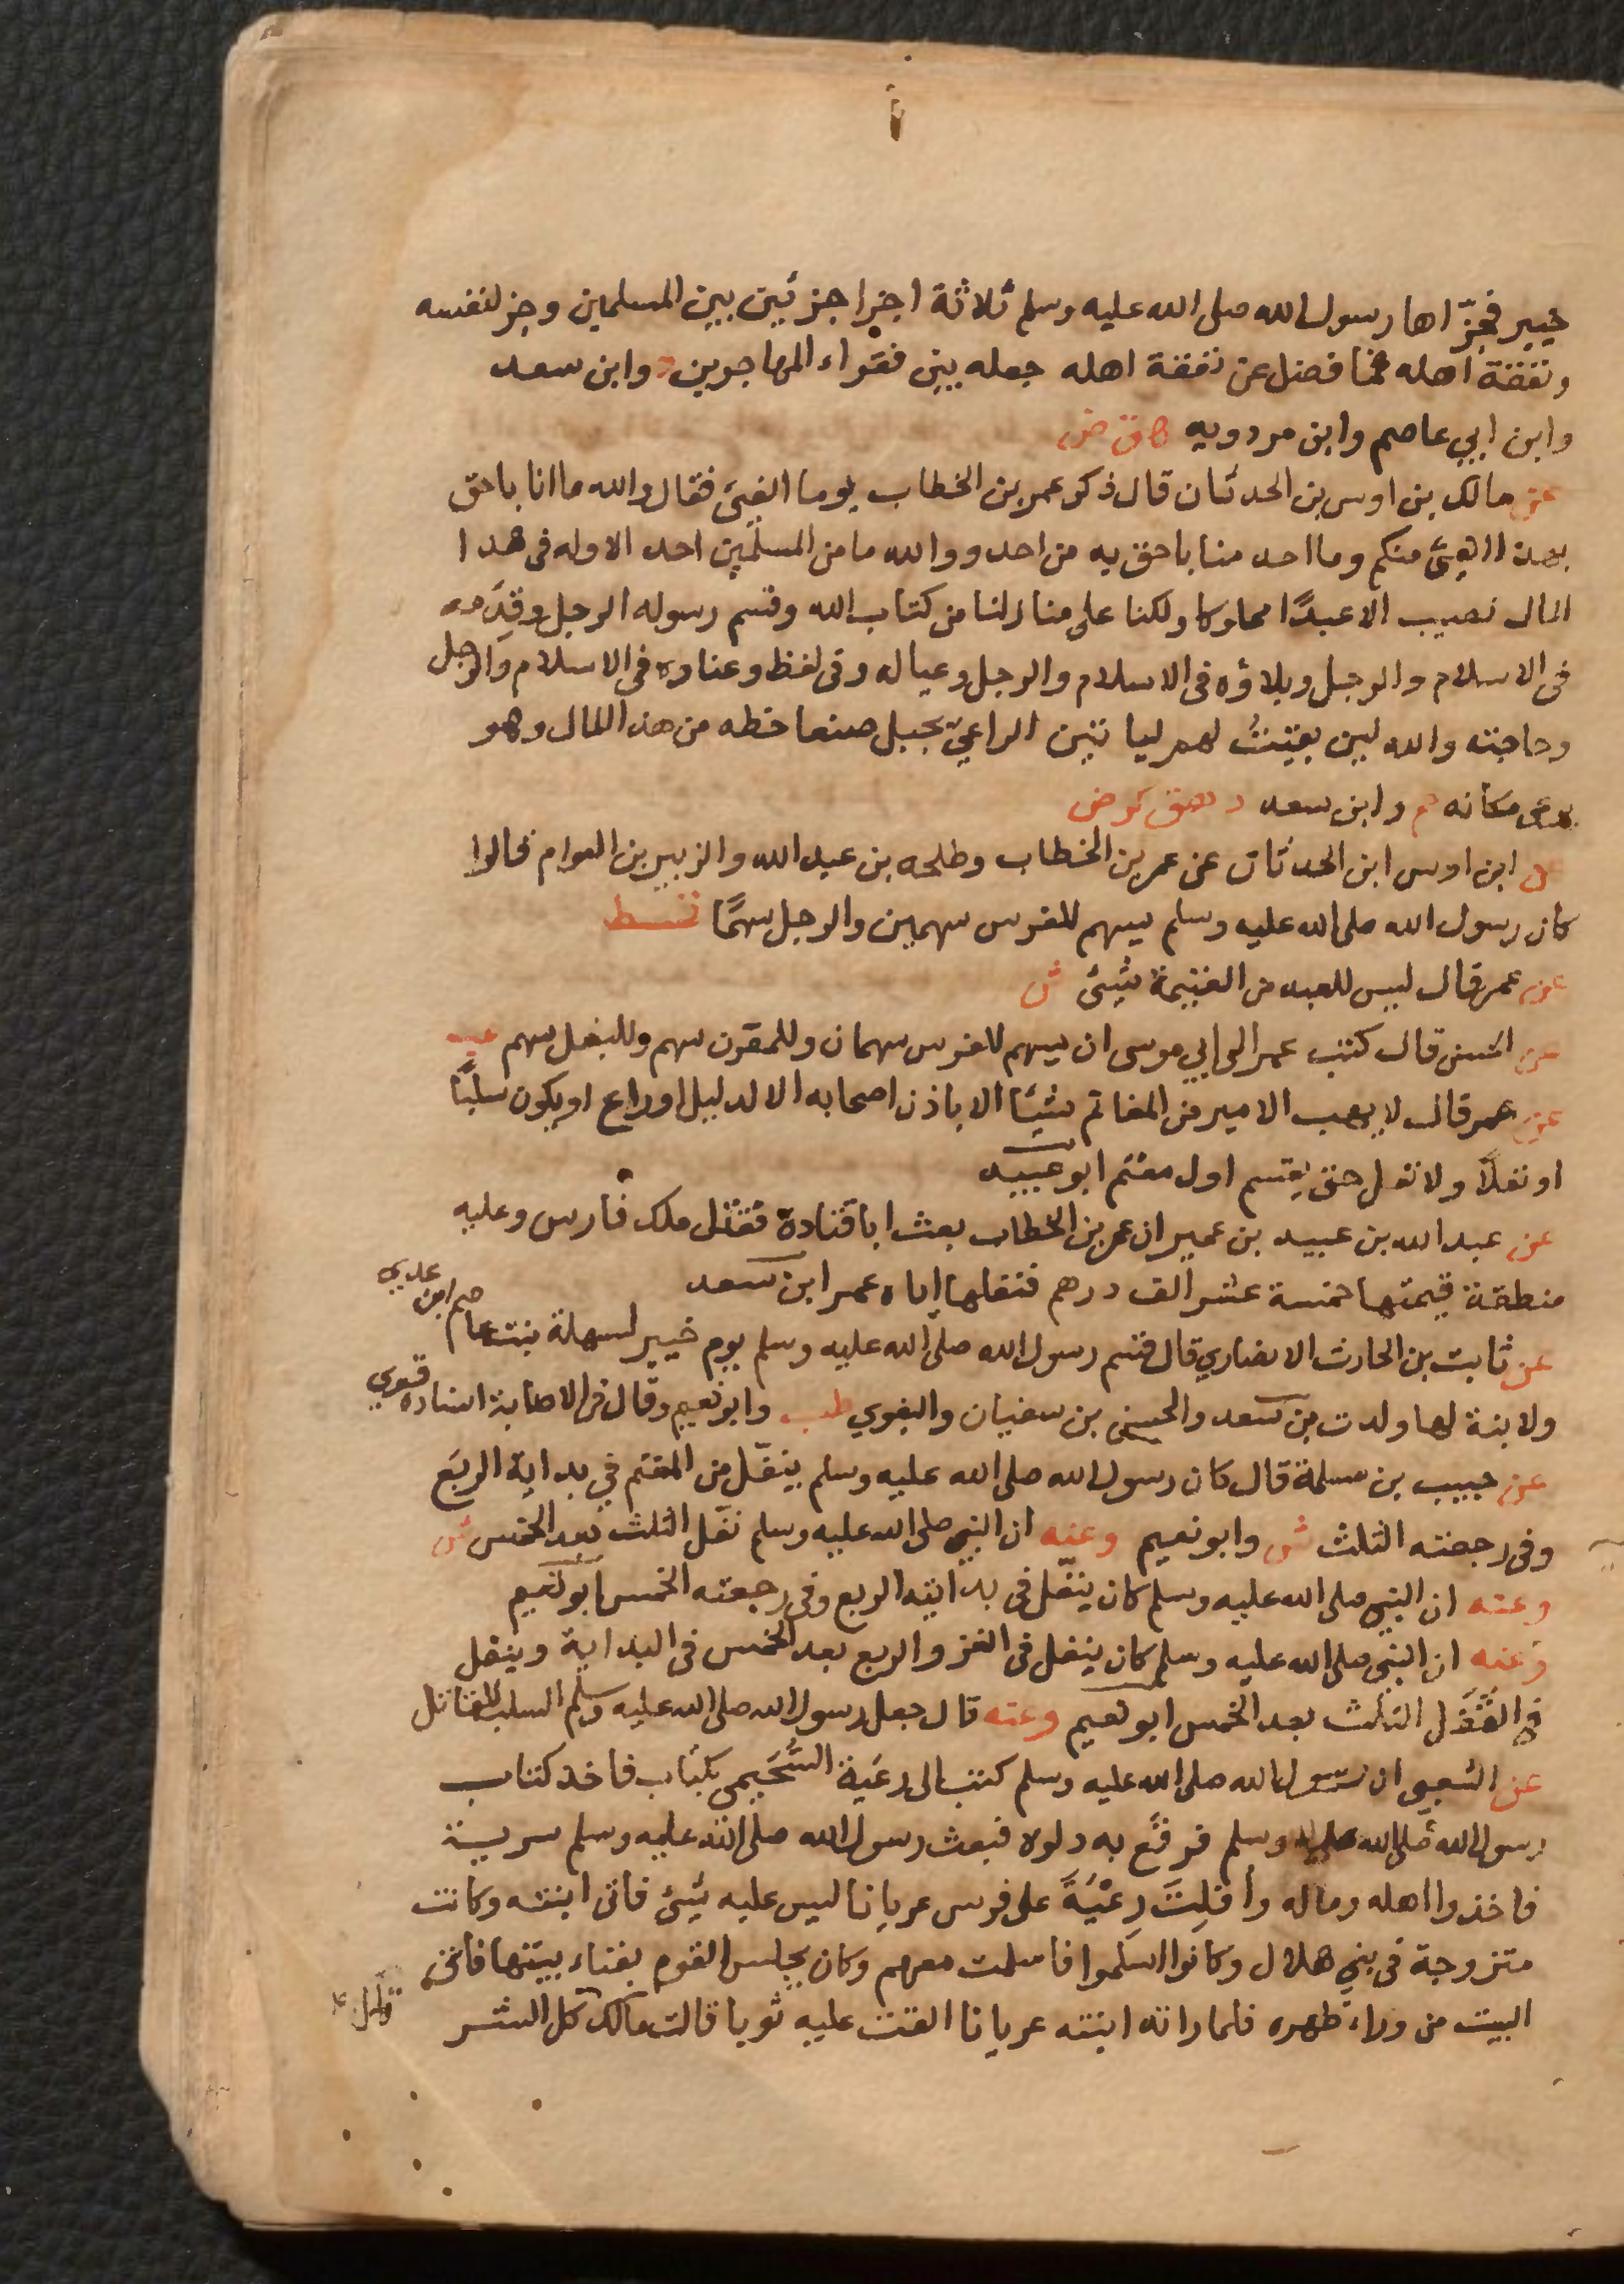 خيبر فجزّاها رسول الله صلى الله عليه وسلم ثلاثة اجزا جزئين بين المسلمين وجز لنفسه
ونفقة اهله فما فضل عن نفقة اهله جعله بين فقراء المهاجرين د وابن سعد
وابن ابي عاصم وابن مردويه ق ض
عن مالك بن اوس بن الحدثان قال ذكر عمر بن الخطاب يوما الفيئ فقال والله ما انا باحق
بهذا الفيئ منكم وما احد منا باحق به من احد ووالله ما من المسلمين احد الا وله فى هذا
المال نصيب الا عبدًا مملوكا ولكنا على منازلنا من كتاب الله وقسم رسوله الرجل وقدمه
فى الاسلام والرجل وبلاؤه فى الاسلام والرجل وعياله وفى لفظ وعناوه فى الاسلام والرجل
وحاجته والله لين بقيتُ لهم لياتين الراعيّ بجبل صنعا حظه من هذا المال وهو
يرعى مكانه حم وابن سعد د هق كر ض
عن ابن اوس ابن الحدثان عن عمر بن الخطاب وطلحه بن عبيد الله والزبير بن العوام قالوا
كان رسول الله صلى الله عليه وسلم يسهم للفرس سهمين والرجل سهمًا قسط
عن عمر قال ليس للعبد من الغنيمة شيئ ش
عن الحسن قال كتب عمر الى ابي موسى ان يسهم للفرس سهمان وللمقرن سهم وللبغل سهم عب
عن عمر قال لا يهب الامير من المغانم شيئا الا باذن اصحابه الا لدليل او راع او يكون سلبًا
او نفلًا ولا نفل حتى يقسم اول مغنم ابو عبيد
عن عبد الله بن عبيد بن عمير ان عمر بن الخطاب بعث ابا قتادة فقتل ملك فارس وعليه
منطقة قيمتها خمسة عشر الف درهم فنفلها اياه عمر ابن سعد
عن ثابت بن الحارث الانصاري قال قسم رسول الله صلى الله عليه وسلم يوم خيبر لسهلة بنت عاصم ابن عدي
ولابنة لها ولدت بن سعد والحسن بن سفيان والبغوي طب وابو نعيم وقال فى الاصابة اسناده قوي
عن حبيب بن مسلمة قال كان رسول الله صلى الله عليه وسلم ينفّل من المغنم في بداية الربع
وفى رجعته الثلث ش وابو نعيم وعنه ان النبي صلى الله عليه وسلم نفّل الثلث بعد الخمس ش
وعنه ان النبي صلى الله عليه وسلم كان ينفّل فى بدايته الربع وفى رجعته الخمس ابو نعيم
وعنه ان النبى صلى الله عليه وسلم كان ينفل فى الغزو الربع بعد الخمس فى البداية وينفل
فى القفل الثلث بعد الخمس ابو نعيم وعنه قال جعل رسول الله صلى الله عليه وسلم السلب للقاتل
عن الشعبى ان رسول الله صلى الله عليه وسلم كتب الى رعية السُّحَيمى بكتاب فاخذ كتاب
رسول الله صلى الله عليه وسلم فرقّع به دلوه فبعث رسول الله صلى الله عليه وسلم سرية
فاخذوا اهله وماله وأفلت رِعْيَةَ على فرس عريانا ليس عليه شيئ فاتى ابنته وكانت
متزوجة فى بني هلال وكانوا اسلموا فاسلمت معهم وكان مجلس القوم بفناء بيتها فاتى
البيت من وراء ظهره فلما راته ابنته عريانا القت عليه ثوبا قالت مالك كل الشر